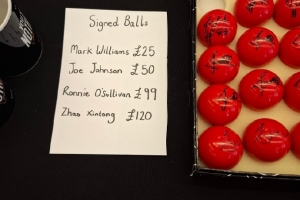 Signed Balls
Mark Williams £25
Joe Johnson £50
Ronnie O'Sullivan £99
Zhao Xintong £120